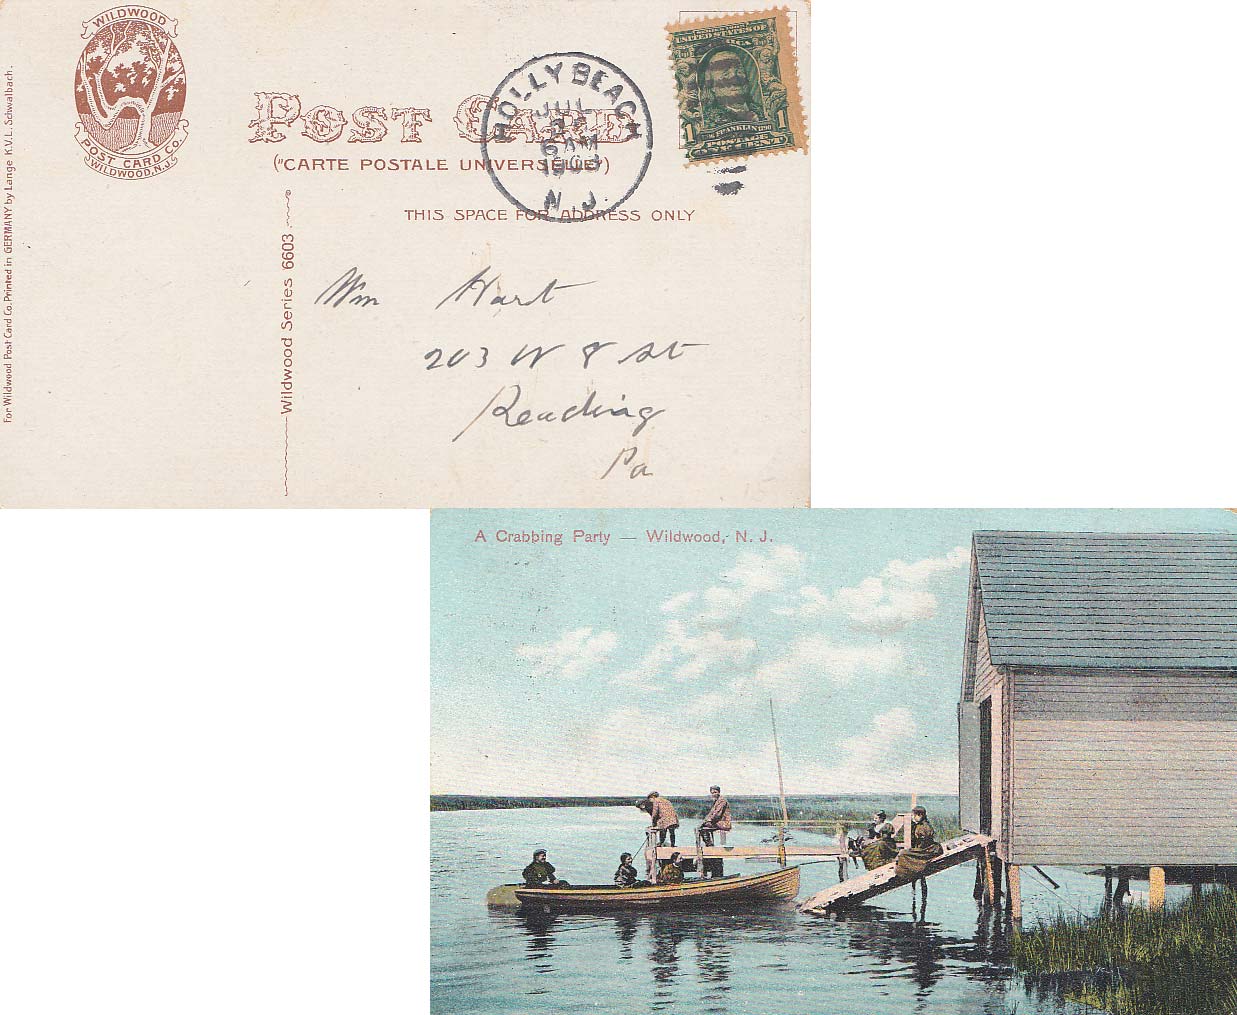 WILDWOOD
POST CARD CO.
WILDWOOD, N.J.
For Wildwood Post Card Co. Printed in GERMANY by Lange K.V.L. Schwalbach.
POST CARD
("CARTE POSTALE UNIVERSELLE")
HOLLY BEACH
JUL
6 AM
N. J.
UNITED STATES OF
FRANKLIN
1 POSTAGE
ONE CENT 1
THIS SPACE FOR ADDRESS ONLY
Wildwood Series 6603
Wm Hart
203 W 8 St
Reading
Pa
A Crabbing Party — Wildwood, N. J.